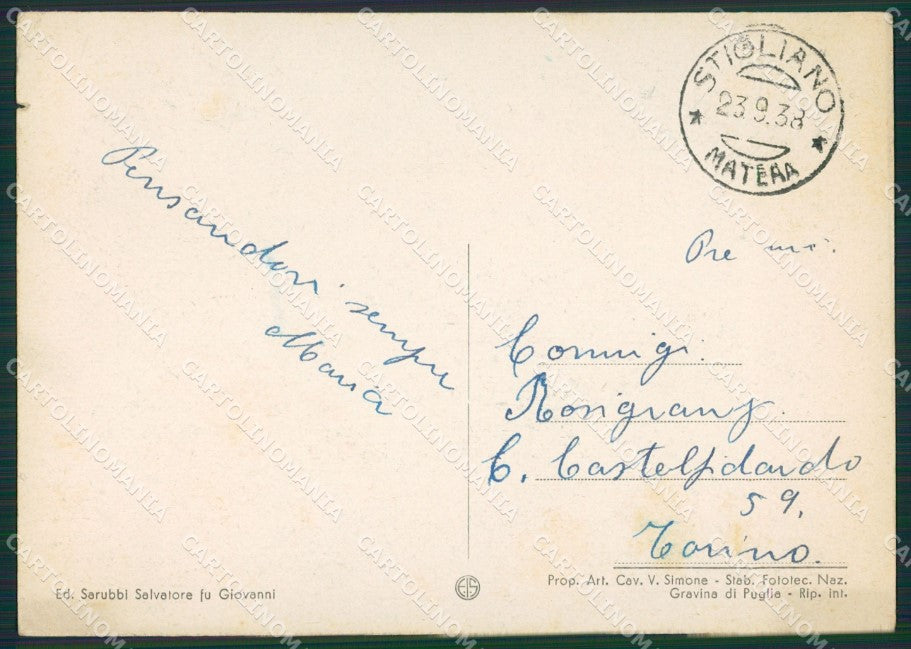 STIGLIANO
23.9.38
MATERA
Pensandovi sempre
Maria
Pre mi.
Comigi.
Rosigranz.
C. Castelfidardo
59.
Torino.
Ed. Sarubbi Salvatore fu Giovanni
Prop. Art. Cav. V. Simone - Stab. Fototec. Naz.
Gravina di Puglia - Rip. int.
CARTOLINOMANIA